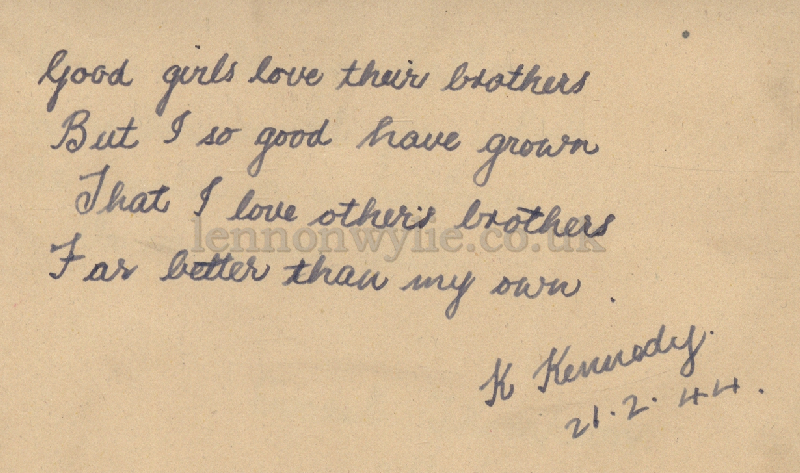 Good girls love their brothers
But I so good have grown
That I love other's brothers
lennonwylie.co.uk
Far better than my own.
K Kennedy.
21.2.44.